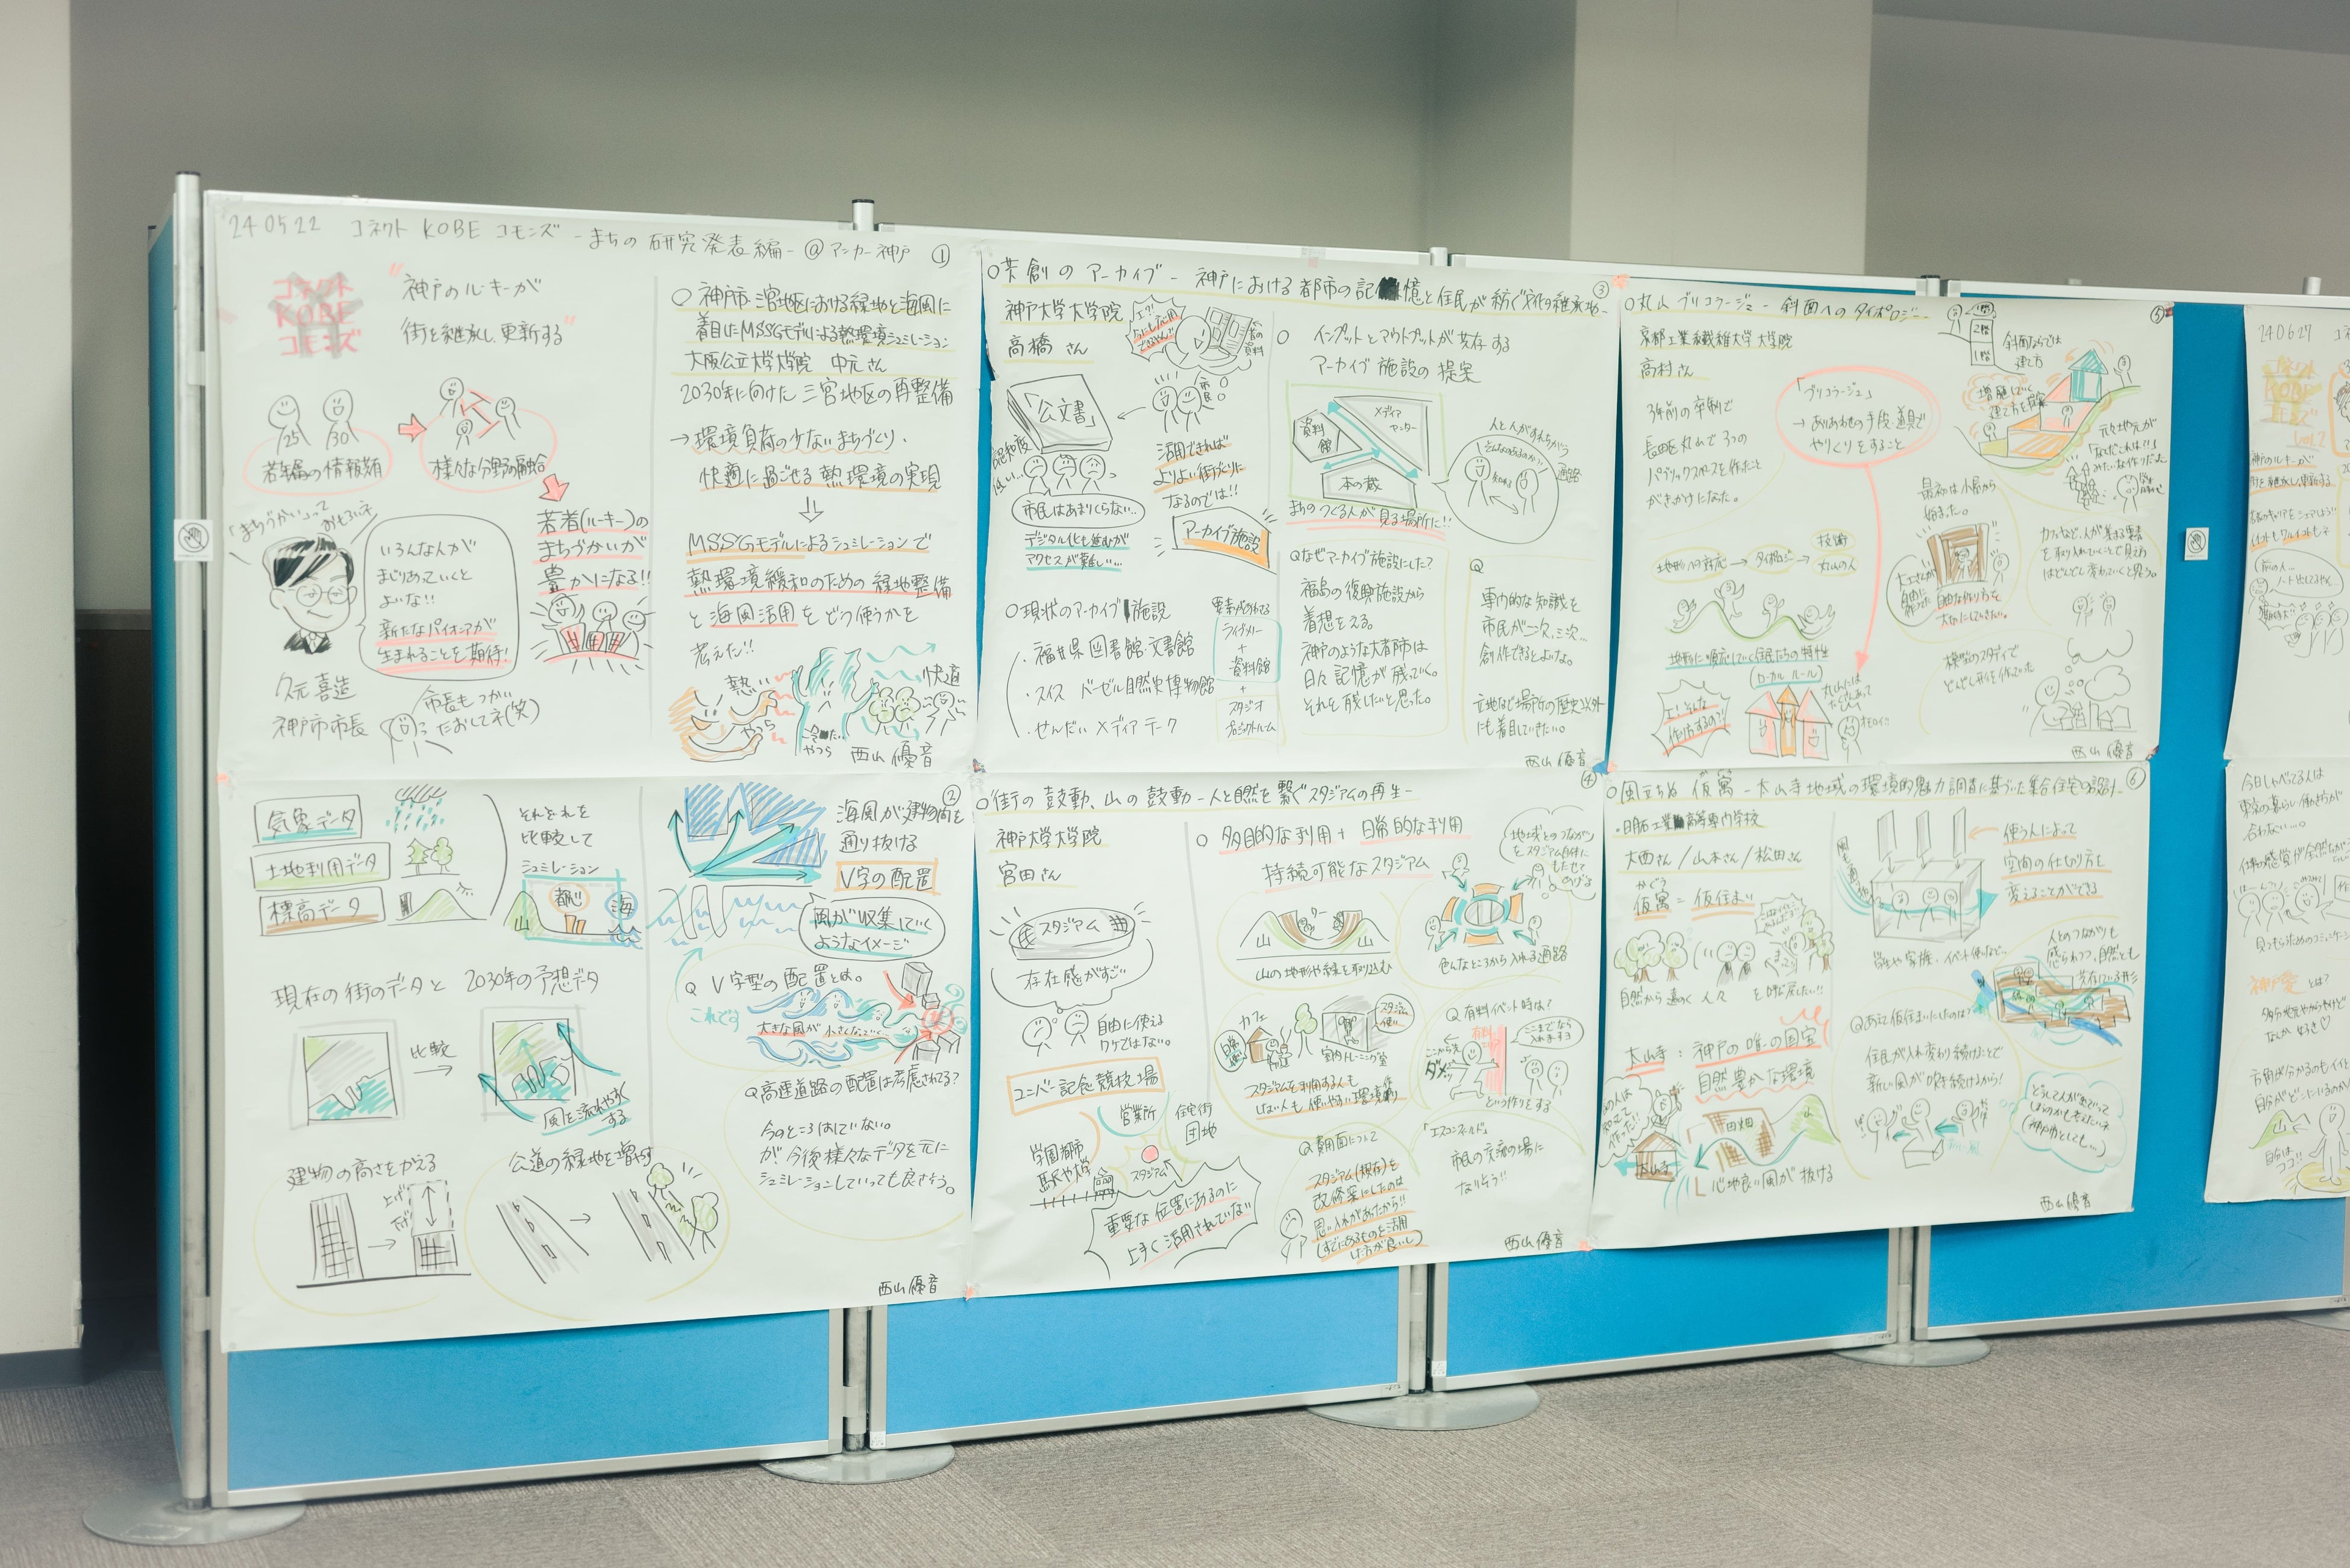 240522 コネクト KOBE コモンズ -まちの研究発表編- @アンカー神戸 ①
コネクト
KOBE
コモンズ
"神戸のルーキーが
街を継承し更新する"
25 30
若年層の情報共有
様々な分野の融合
若者(ルーキー)の
まちづかいが
豊かになる!!
「まちづかい」って
おもろいネ
いろんな人が
まじりあっていくと
よいな!!
新たなパイオニアが
生まれることを期待!
久元喜造
神戸市市長
市長もつかい
たおしてネ(笑)
○神戸市三宮地区における緑地と海風に
着目したMSSGモデルによる熱環境シュミレーション
大阪公立大学大学院 中元さん
2030年に向けた三宮地区の再整備
→環境負荷の少ないまちづくり・
快適に過ごせる熱環境の実現
MSSGモデルによるシュミレーションで
熱環境緩和のための緑地整備
と海風活用をどう使うかを
考えた!!
熱い
やつら
やつら
快適
西山優音
②
気象データ
土地利用データ
標高データ
それぞれを
比較して
シュミレーション
山 都心 海
現在の街のデータと2030年の予想データ
比較
風を流れやすく
する
建物の高さをかえる
上げ
下げ
公道の緑地を増やす
海風が建物間を
通り抜ける
V字の配置
風が収集していく
ようなイメージ
Q V字型の配置とは。
これです
大きな風が小さくなっていく
Q高速道路の配置は考慮されてる?
今のところはしていない。
が、今後様々なデータを元に
シュミレーションしていっても良さそう。
西山優音
○共創のアーカイブ - 神戸における都市の記憶と住民が紡ぐ文化の継承地- ③
神戸大学大学院
高橋さん
「公文書」
認知度
低い…
市民はあまりくらない…
デジタル化も進むが
アクセスが難しい…
市民
昔の資料
活用できれば
よりよい街づくりに
なるのでは!!
アーカイブ施設
○現状のアーカイブ施設
・福井県図書館・文書館
・スイス バーゼル自然史博物館
・せんだいメディアテーク
ライブラリー
+
資料館
+
スタジオ
プロジェクトルーム
○ インプットとアウトプットが共存する
アーカイブ施設の提案
資料館
メディアセンター
本の蔵
まちのつくる人が見る場所に!!
人と人がすれちがう
通路
Qなぜアーカイブ施設にした?
福島の復興施設から
着想をえる。
神戸のような大都市は
日々記憶が残っていく。
それを残したいと思った。
Q
専門的な知識を
市民が二次、三次…
創作できるとよいな。
立地など場所の歴史以外
にも着目していきたい。
西山優音
○街の鼓動、山の鼓動 -人と自然を繋ぐスタジアムの再生- ④
神戸大学大学院
宮田さん
スタジアム
存在感がすごい
自由に使える
ワケではない。
ユニバー記念競技場
営業所
住宅街
団地
学園都市
駅や大学
スタジアム
重要な位置にあるのに
上手く活用されていない
○ 多目的な利用 + 日常的な利用
持続可能なスタジアム
山 山
山の地形や緑を取り込む
地域とのつながり
をスタジアム自体に
もたせて
あげる
色んなところから入れる通路
カフェ
日常使い
室内トレーニング室
スタジアム使い
スタジアムを利用する人も
しない人も使いやすい環境創り
Q有料イベント時は?
ここから先
ダメ
有料
ここまでなら
入れますヨ
という作りをする
Q費用面について
スタジアム(現在)を
改修案にしたのは
思い入れがあったから!!
(すでにあるものを活用
した方が良いし)
「エスコンフィールド」
市民の交流の場に
なりそう!!
西山優音
○丸山ブリコラージュ - 斜面へのタイポロジー - ⑤
京都工業繊維大学大学院
高村さん
3年前の卒制で
長田区丸山で3つの
パブリックスペースを作ったこと
がきっかけになった。
「ブリコラージュ」
→ありあわせの手段・道具で
やりくりをすること
地形への対応→タイポロジー→技術
丸山の人
地形に順応していく住民たちの特性
(ローカルルール)
え!そんな
作り方するの?!
2階
1階
斜面ならでは
建て方
増築していく
建て方を探求
元々地元が
「なんだこれは!!」
みたいな作りだった
最初は小屋から
始まった。
自由な作り方を
大切にしていきたい。
カフェなど、人が集まる要素
を取り入れていくことで見え方
はどんどん変わっていくと思う。
模型のスタディで
どんどん形を作っていった
西山優音
○風立ちぬ 仮寓 -太山寺地域の環境的魅力調査に基づいた集合住宅の設計- ⑥
・明石工業高等専門学校
大西さん/山本さん/松田さん
かぐう
仮寓=仮住まい
自然から遠のく人々を呼び戻したい!!
太山寺:神戸の唯一の国宝
自然豊かな環境
太山寺
田畑
心地良い風が抜ける
使う人によって
空間の仕切り方を
変えることができる
学生や家族・イベント使いなど…
Qあえて仮住まいにしたのは?
住民が入れ変わり続けることで
新しい風が吹き続けるから!
人とのつながりも
感じられつつ、自然とも
共存している形
西山優音
240627
Vol.2
今日しゃべてる人は
東京の暮らし・働き方が
合わない…。
神戸愛とは?
なんか好き♡
山
自分は
ココ!!